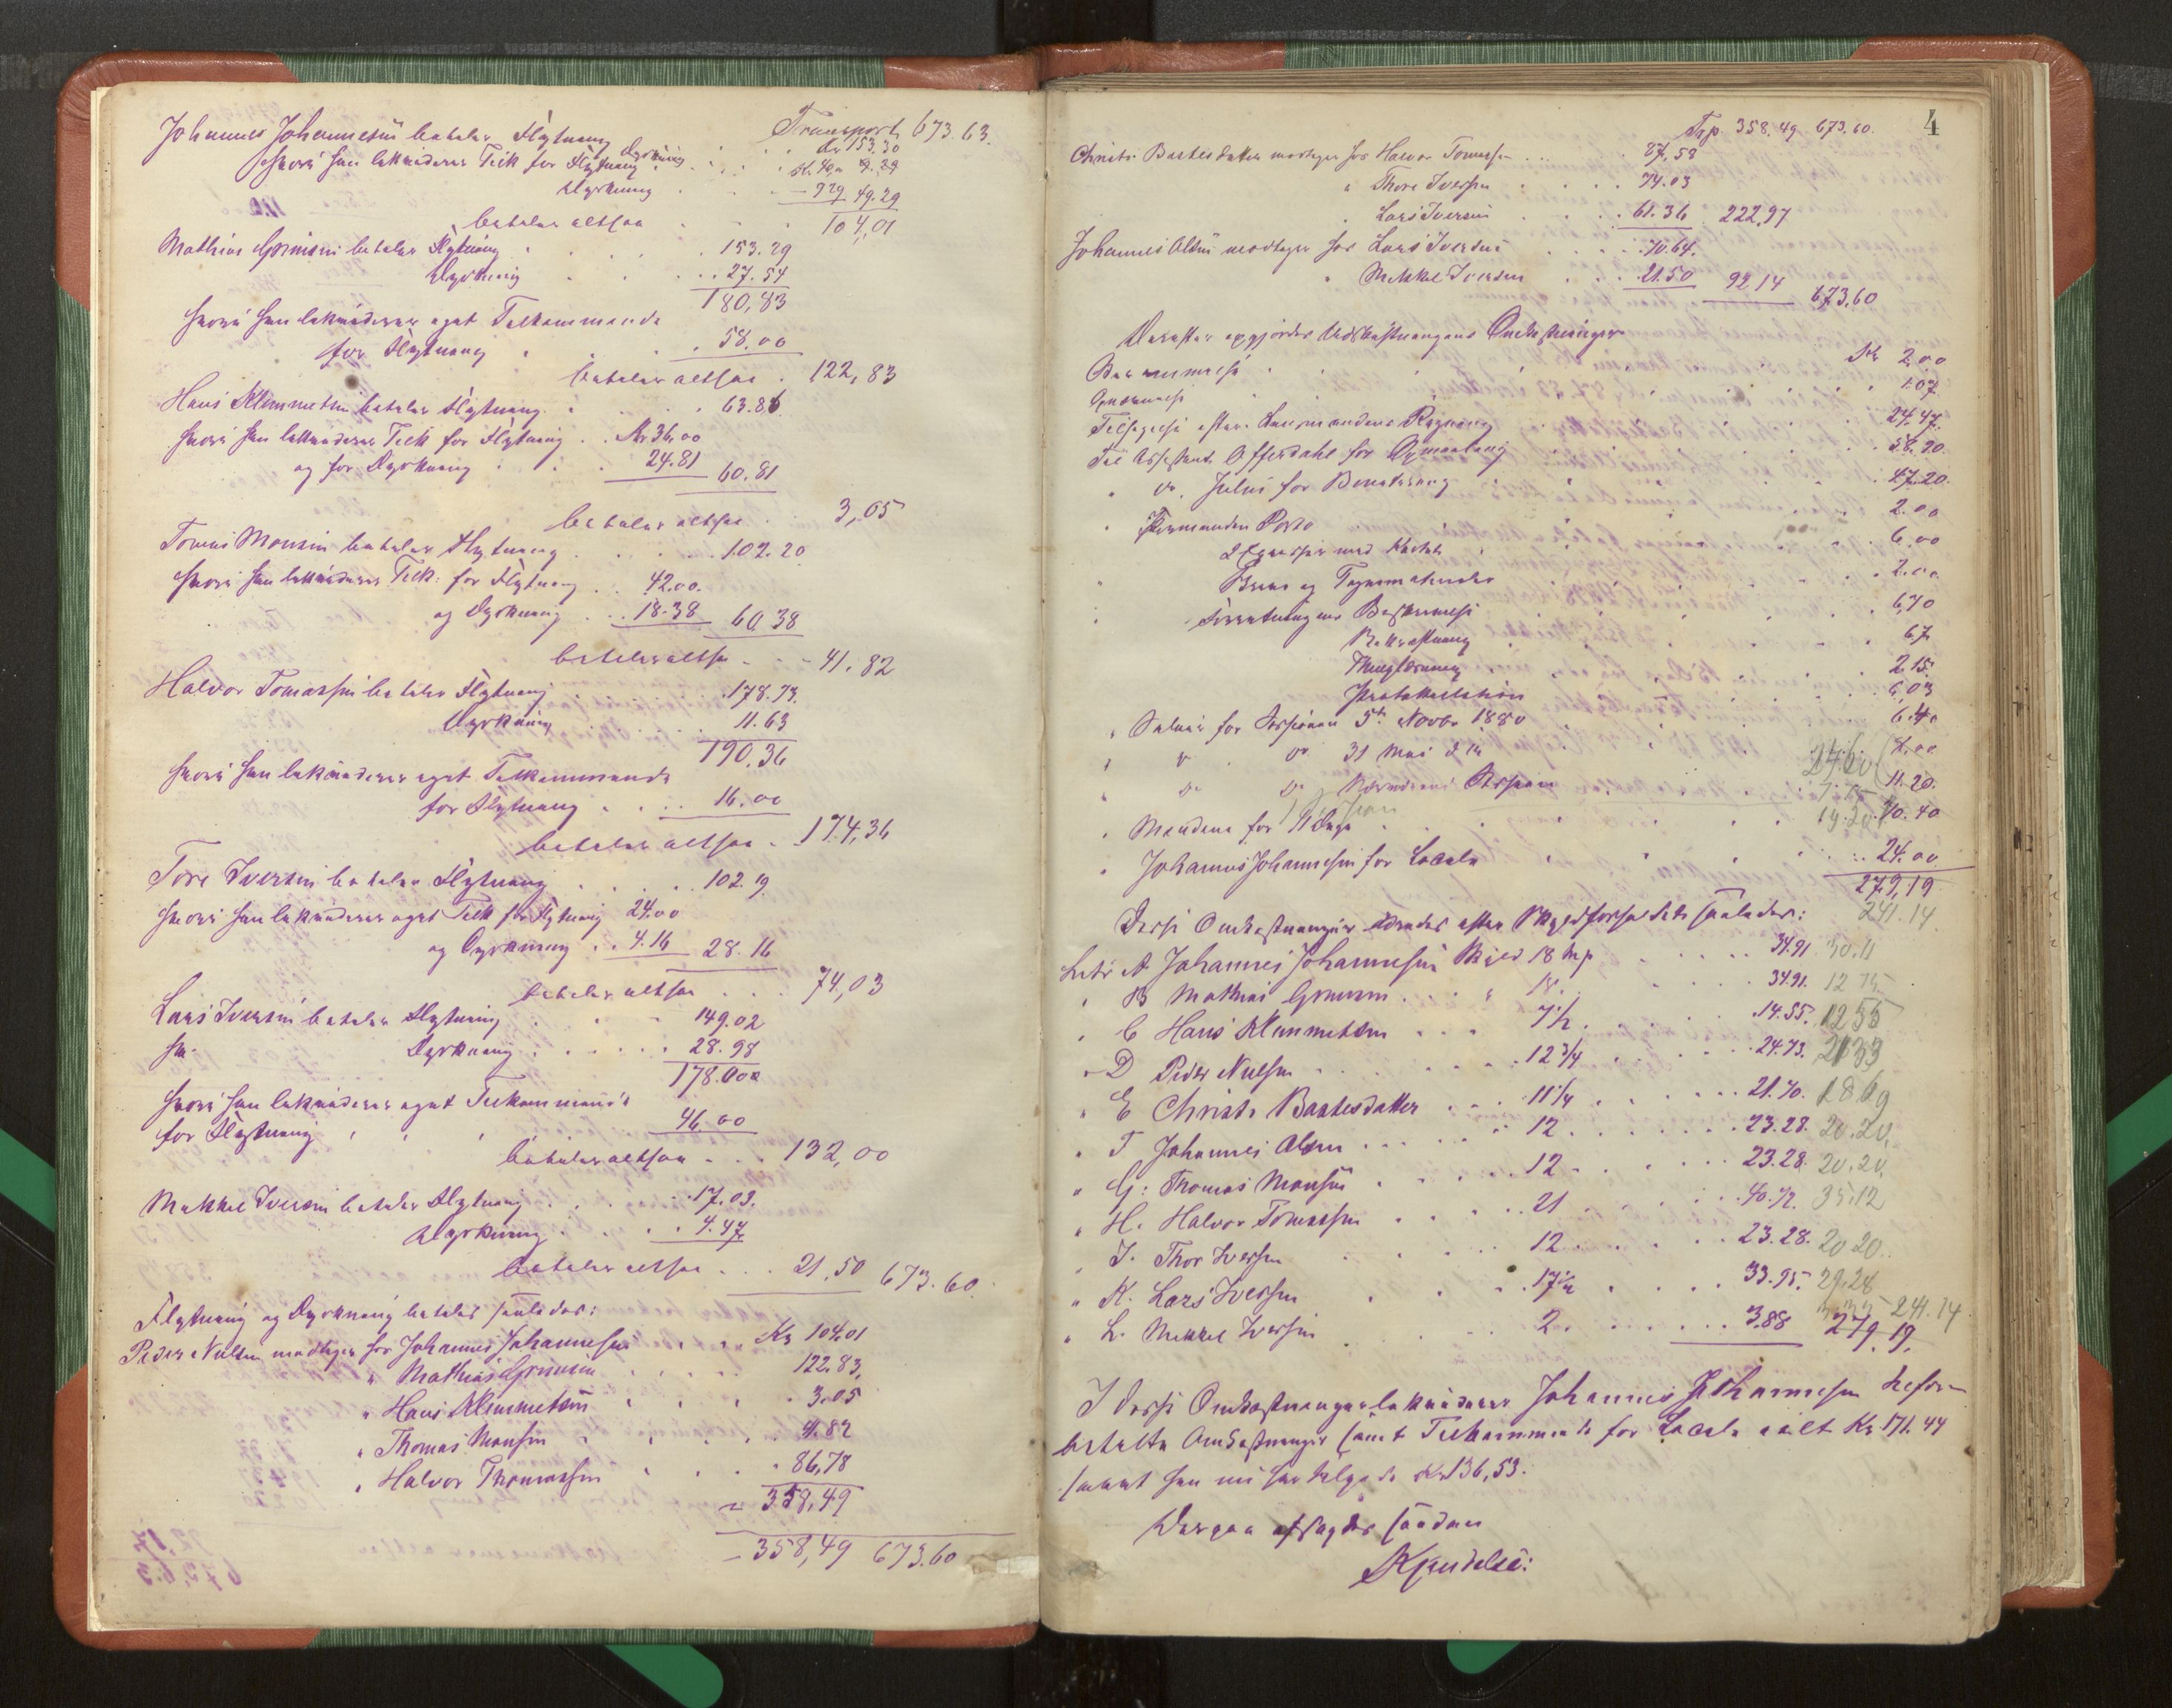 Transport 673.63.
Johannes Johannesen betaler Flytning Dyrkning . . Kr 153.30
hvori han lekviderer Teik for Flytning . . . Kr. 40,00 9.29
Dyrkning . . . 929 49.29
betaler altsaa . . 104,01
Mathias Grimsen betaler Flytning . . . 153.29
Dyrkning . . . 27.54
180,83
hvori han lekviderer eget Tilkommende
for Flytning . . . 58.00
betaler altsaa . 122,83
Hans Klemmetsen betaler Flytning . . . 63.86
hvori han lekviderer Teik for Flytning . . Kr 36,00
og for Dyrkning . . . 24.81 60.81
betaler altsaa . 3,05
Tomas Monsen betaler Flytning . . . . 102.20
hvori han lekviderer Teik: for Flytning . . 42.00.
og Dyrkning . . 18.38 60.38
betaler altsaa . . 41.82
Halvor Tomassen betaler Flytning . . . 178.73.
Dyrkning . . . 11.63
190.36
hvori han lekviderer eget Tilkommende
for Flytning . . . . 16.00
betaler altsaa . 174,36
Tore Iversen betaler Flytning . . . . 102.19
hvori han lekviderer eget Teik for Flytning 24.00
og Dyrkning . . 4.16 28.16
betaler altsaa . . . 74,03
Lars Iversen betaler Flytning . . . 149.02
Dyrkning . . . . . 28.98
178.00
hvori han lekviderer eget Tilkommende
for Flytning . . . 46.00
betaler altsaa . . . 132,00
Mekkel Iversen betaler Flytning . . . 17.03.
Dyrkning . . . . 4.47
betaler altsaa . . . 21.50 673.60.
Flytning og Dyrkning betales saaledes:
Peder Nielsen modtager hos Johannes Johannesen . . . Kr 104.01
" Mathias Grimsen . . . . 122.83,
" Hans Klemmetsen . . . . 3.05
" Thomas Monsen . . . . 41.82
" Halvor Thomassen . . . 86,78
358,49
358,49 673.60
4
Trp. 358.49 673.60.
Christi Baatesdatter modtager hos Halvor Tomassen . . . 87,58
" Thore Iversen . . . . 74.03
" Lars Iversen . . . . 61.36 222,97
Johannes Olsen modtager hos Lars Iversen . . . 70.64.
" Mekkel Iversen . . . 21.50 92.14
673.60
Derefter opgjordes Udskiftningens Omkostninger
Berammelse . . . Kr 2,00
Opnævnelse . . . 1.07
Tilsigelse efter Lensmandens Regning . . . 24.47.
Til Assistent Offerdahl for Opmaaling . . . 58.90
" Do. Julus for Bonitering . . . 47.20.
" Formanden Porto . . . 2.00
2 Exemplar med Kartet . . . 6.00
Breve og Tegnematerialer . . . 2.00.
" Forretningens Beskrivelse . . . 6,70
Bekræftning . . . 67.
Thinglæsning . . . 2.15.
Protokollation . . . 6,03
" Salær for Sessionen 5te Novbr 1880 . . . 6.40
" Do. Do. 31 Mai d. A. . . . 8.00
" Do. Do. nærværende Session . . . 11.20.
" Mændene for 11 Dage . . . 70.40
" Johannes Johannesen for Locale . . . 24.00
279,19
241.14.
Disse Omkostninger udredes efter Skyldforholdet saaledes:
Litr A Johannes Johannesen Skyld 18 mp . . . 34.91 30.11
" B Mathias Grimsen . . . " 18. . . . 34.91. 12 75
" C Hans Klemmetsen . . . 7½ . . . 14.55. 12 55
" D Peder Nielsen . . . 12 3/4 . . . 24.73. 21 33
" E Christi Baatesdatter . . . 11 1/4 . . . 21.70. 18 69
" F Johannes Olsen . . . 12 . . . 23.28. 20.20.
" G: Thomas Monsen . . . 12 . . . 23.28. 20.20.
" H. Halvor Tomassen . . . 21 . . . 40.72. 35.12
" I. Thor Iversen . . . 12 . . . 23.28. 20 20.
" K. Lars Iversen . . . 17½ . . . 33.95. 29.28
" L. Mekkel Iversen . . . 2. . . . 3.88 3.35 241.14
279.19.
I disse Omkostninger lekviderer Johannes Johannesen de for-
betalte Omkostninger samt Tilkommende for Locale ialt Kr 171.44
saaat han vil have tilgode Kr 136,53.
Derpaa afsagdes saadan
Kjendelse: